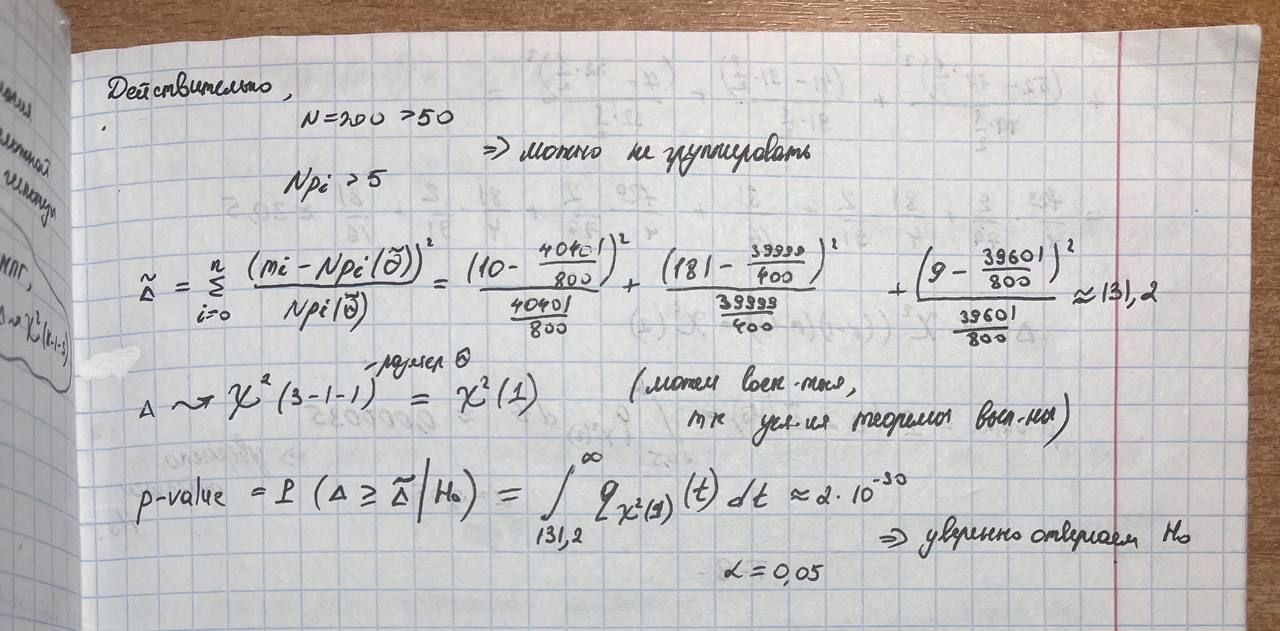 Действительно,
N=200 > 50
⇒ можно не группировать
Npi > 5
Δ̃ = Σ_{i=0}^{n} (mi − Npi(θ̃))² / Npi(θ̃) = (10 − 40401/800)² / (40401/800) + (181 − 39999/400)² / (39999/400) + (9 − 39601/800)² / (39601/800) ≈ 131,2
размер θ
Δ ⇝ χ²(3−1−1) = χ²(1) (можем восп-ться,
тк усл-ия теоремы вып-ны)
p-value = P(Δ ≥ Δ̃ | H₀) = ∫_{131,2}^{∞} q_{χ²(1)}(t) dt ≈ 2·10⁻³⁰
⇒ уверенно отвергаем H₀
α = 0,05